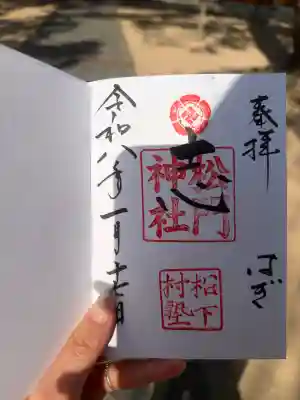 奉拝
はぎ
志
松門
神社
松下
村塾
令和八年一月十七日